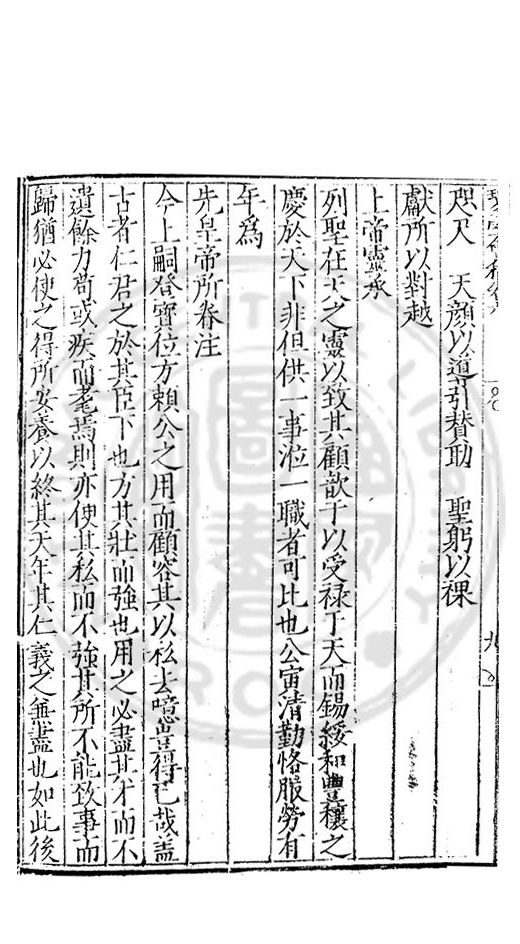 咫尺　天顔以導引贊助　聖躬以祼
獻所以對越
上帝靈承
列聖在天之靈以致其顧歆于以受祿于天而錫綏和豐穰之
慶於天下非但供一事涖一職者可比也公寅清勤恪服勞有
年爲
先皇帝所眷注
今上嗣登寶位方賴公之用而顧容其以私去噫豈得已哉盖
古者仁君之於其臣下也方其壯而強也用之必盡其才而不
遺餘力苟或疾而耄焉則亦使其私而不強其所不能致事而
歸猶必使之得所安養以終其天年其仁義之無盡也如此後